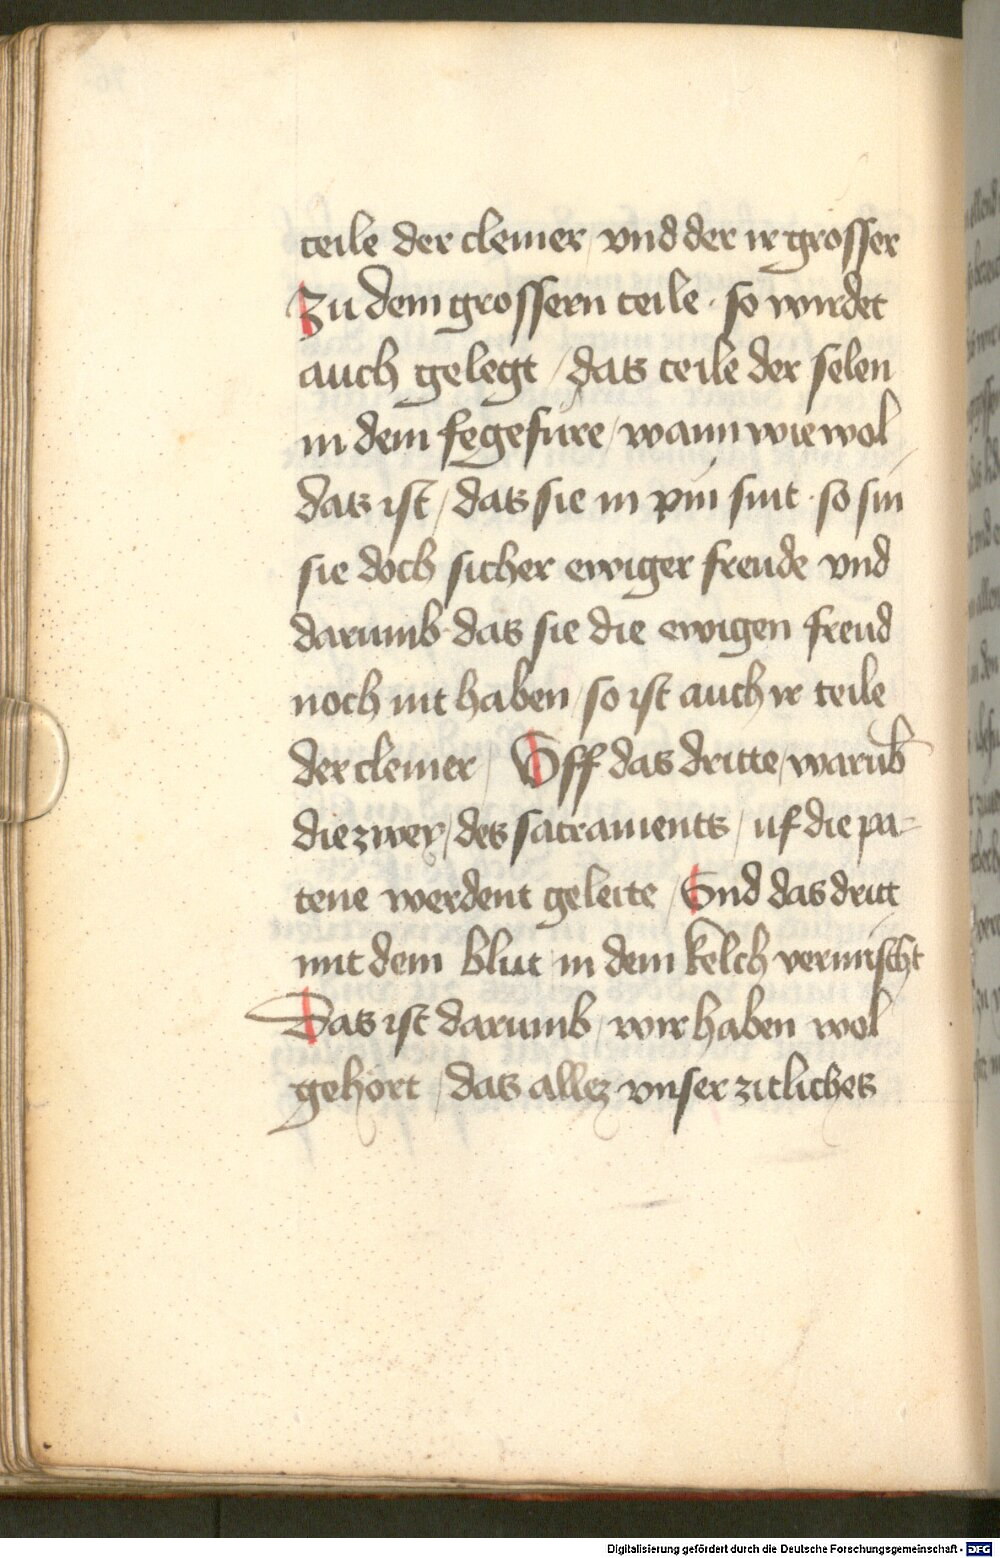 teile der cleiner / vnd der ir grosser
Zu dem grossern teile · so wirdet
auch gelegt / das teile der selen
in dem fegefüre / wann wie wol
das ist / das sie in pin sint · so sin
sie doch sicher ewiger freude vnd
darumb das sie die ewigen freud
noch nit haben / so ist auch ir teile
der cleiner / Vff das dritte / warūb
die zwey / des sacraments / uf die pa-
tene werdent geleite / Vnd das dritt
mit dem blut in dem kelch vermischt
Das ist darumb / wir haben wol
gehört / das allez vnser zitliches
Digitalisierung gefördert durch die Deutsche Forschungsgemeinschaft - DFG